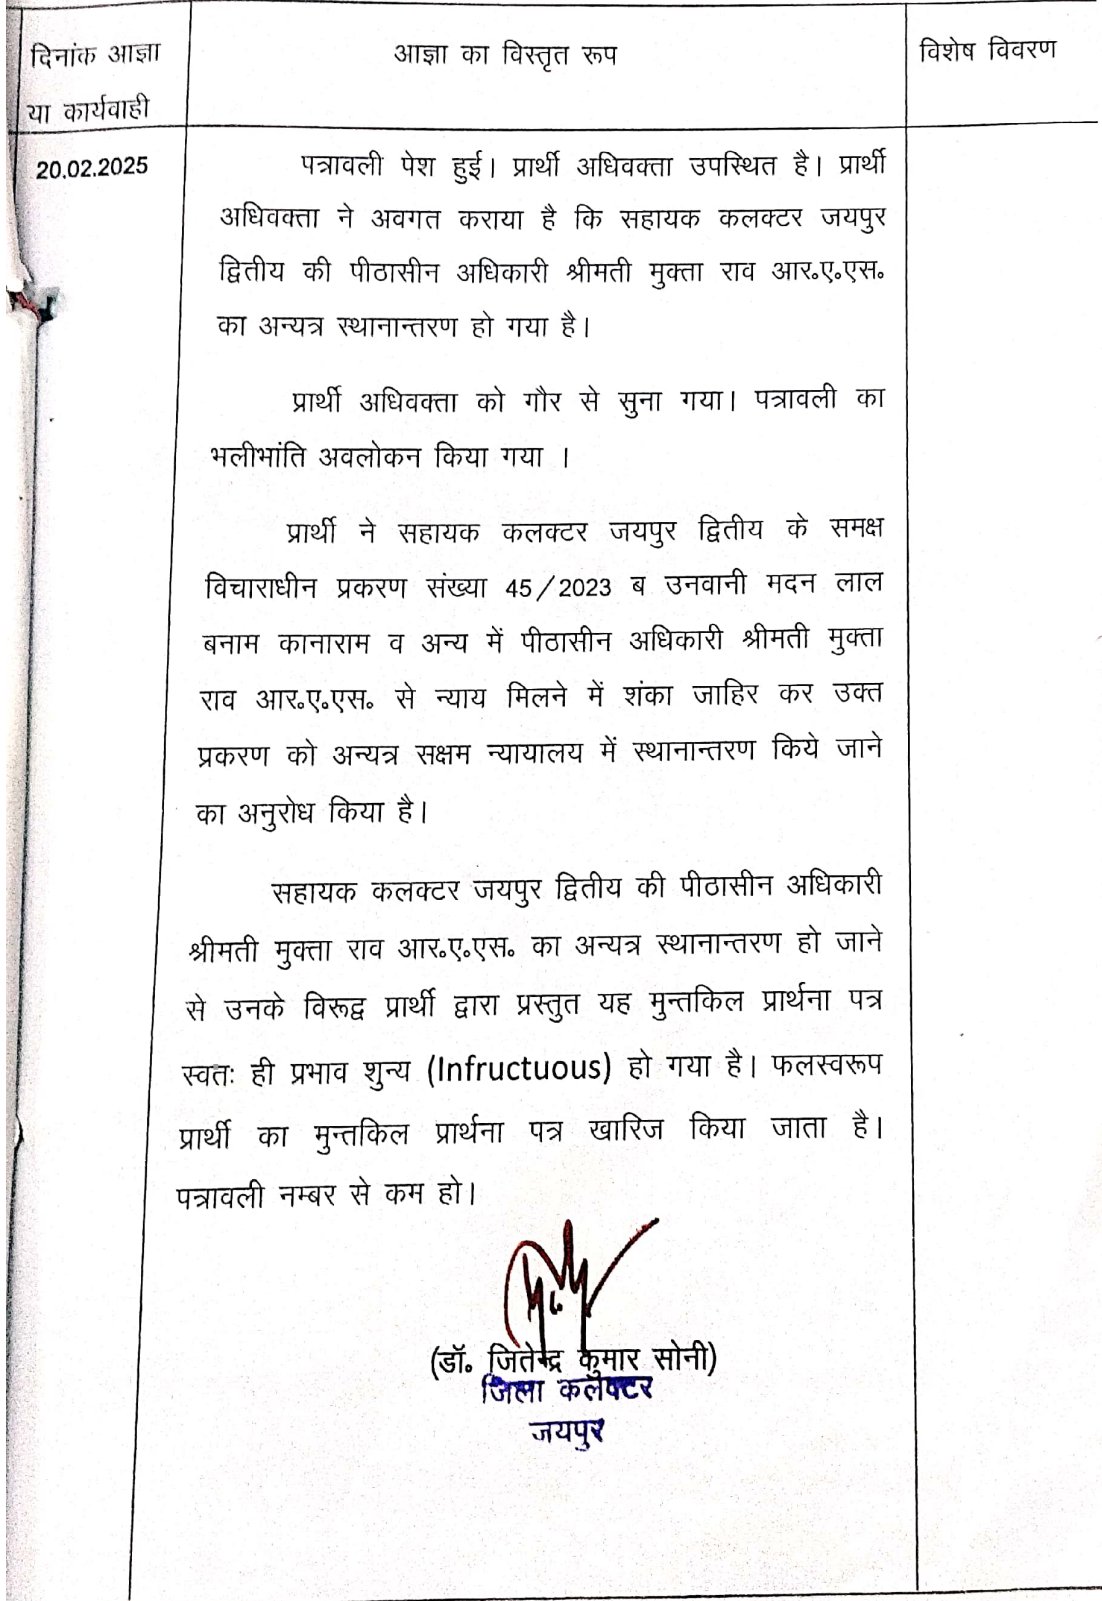 दिनांक आज्ञा
या कार्यवाही
आज्ञा का विस्तृत रूप
विशेष विवरण
20.02.2025
पत्रावली पेश हुई। प्रार्थी अधिवक्ता उपस्थित है। प्रार्थी
अधिवक्ता ने अवगत कराया है कि सहायक कलक्टर जयपुर
द्वितीय की पीठासीन अधिकारी श्रीमती मुक्ता राव आर॰ए॰एस॰
का अन्यत्र स्थानान्तरण हो गया है।
प्रार्थी अधिवक्ता को गौर से सुना गया। पत्रावली का
भलीभांति अवलोकन किया गया ।
प्रार्थी ने सहायक कलक्टर जयपुर द्वितीय के समक्ष
विचाराधीन प्रकरण संख्या 45/2023 ब उनवानी मदन लाल
बनाम कानाराम व अन्य में पीठासीन अधिकारी श्रीमती मुक्ता
राव आर॰ए॰एस॰ से न्याय मिलने में शंका जाहिर कर उक्त
प्रकरण को अन्यत्र सक्षम न्यायालय में स्थानान्तरण किये जाने
का अनुरोध किया है।
सहायक कलक्टर जयपुर द्वितीय की पीठासीन अधिकारी
श्रीमती मुक्ता राव आर॰ए॰एस॰ का अन्यत्र स्थानान्तरण हो जाने
से उनके विरूद्व प्रार्थी द्वारा प्रस्तुत यह मुन्तकिल प्रार्थना पत्र
स्वतः ही प्रभाव शुन्य (Infructuous) हो गया है। फलस्वरूप
प्रार्थी का मुन्तकिल प्रार्थना पत्र खारिज किया जाता है।
पत्रावली नम्बर से कम हो।
(डॉ॰ जितेन्द्र कुमार सोनी)
जिला कलक्टर
जयपुर